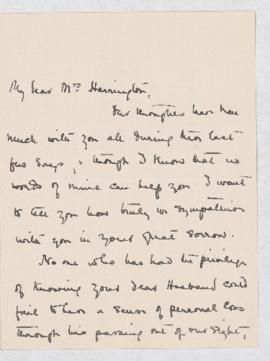 My dear Mrs Harrington,
Our thoughts have been
much with you all during this last
few days, & though I know that no
words of mine can help you I want
to tell you how truly we sympathise
with you in your great sorrow.
No one who has had the privilege
of knowing your dear Husband could
fail to have a sense of personal loss
through his passing out of our sight,